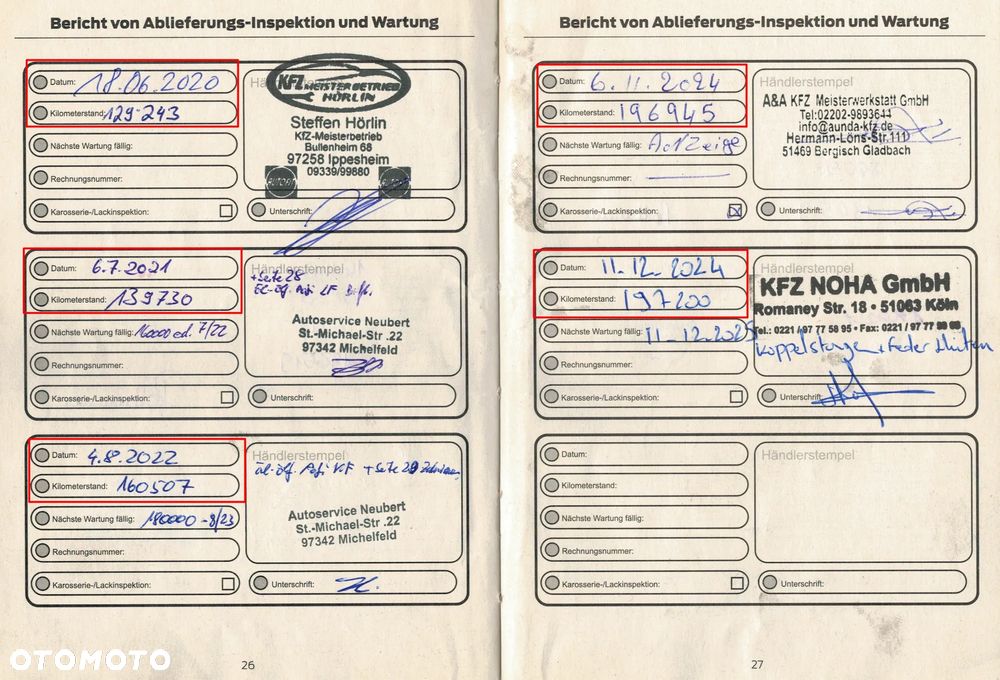 Bericht von Ablieferungs-Inspektion und Wartung
Datum: 18.06.2020
Kilometerstand: 129 243
Nächste Wartung fällig:
Rechnungsnummer:
Karosserie-/Lackinspektion:
KFZ
MEISTERBETRIEB
HÖRLIN
Steffen Hörlin
KfZ-Meisterbetrieb
Bullenheim 68
97258 Ippesheim
09339/99880
Unterschrift:
Datum: 6.7.2021
Kilometerstand: 139730
Nächste Wartung fällig: 7/22
Rechnungsnummer:
Karosserie-/Lackinspektion:
Händlerstempel
+ Seite 28
Autoservice Neubert
St.-Michael-Str .22
97342 Michelfeld
Unterschrift:
Datum: 4.8.2022
Kilometerstand: 160507
Nächste Wartung fällig: 180000 - 8/23
Rechnungsnummer:
Karosserie-/Lackinspektion:
Händlerstempel
Autoservice Neubert
St.-Michael-Str .22
97342 Michelfeld
Unterschrift:
26
Bericht von Ablieferungs-Inspektion und Wartung
Datum: 6.11.2024
Kilometerstand: 196945
Nächste Wartung fällig: Anzeige
Rechnungsnummer:
Karosserie-/Lackinspektion:
Händlerstempel
A&A KFZ Meisterwerkstatt GmbH
Tel:02202-9893644
info@aunda-kfz.de
Hermann-Löns-Str.111
51469 Bergisch Gladbach
Unterschrift:
Datum: 11.12.2024
Kilometerstand: 197200
Nächste Wartung fällig: 11.12.2025
Rechnungsnummer:
Karosserie-/Lackinspektion:
KFZ NOHA GmbH
Romaney Str. 18 • 51063 Köln
Tel.: 0221 / 97 77 58 95 • Fax: 0221 / 97 77
Koppelstangen + Feder hinten
Unterschrift:
Datum:
Kilometerstand:
Nächste Wartung fällig:
Rechnungsnummer:
Karosserie-/Lackinspektion:
Händlerstempel
Unterschrift:
27
OTOMOTO